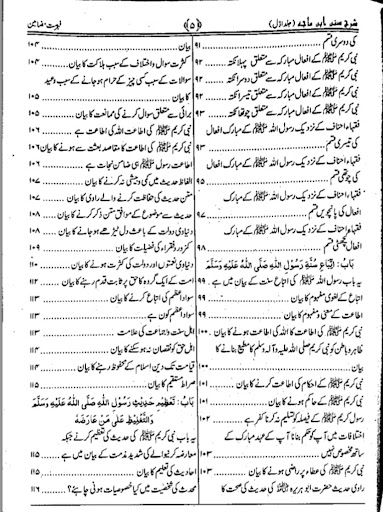 شرح سنن ابن ماجه (جلد اوّل)
﴿۵﴾
فہرست مضامین
کی دوسری قسم ۹۱
نبی کریم ﷺ کے افعال مبارکہ سے متعلق پہلا نکتہ ۹۲
نبی کریم ﷺ کے افعال مبارکہ سے متعلق دوسرا نکتہ ۹۲
نبی کریم ﷺ کے افعال مبارکہ سے متعلق تیسرا نکتہ ۹۲
نبی کریم ﷺ کے افعال مبارکہ سے متعلق چوتھا نکتہ ۹۳
فقہاء احناف کے نزدیک رسول اللہ ﷺ کے مبارک افعال
کی تیسری قسم ۹۳
فقہاء احناف کے نزدیک رسول اللہ ﷺ کے مبارک افعال
کی چوتھی قسم ۹۵
فقہاء احناف کے نزدیک رسول اللہ ﷺ کے مبارک
افعال کی پانچویں قسم ۹۷
فقہاء احناف کے نزدیک رسول اللہ ﷺ کے مبارک
افعال چھٹی قسم ۹۸
بَابُ: اِتِّبَاعِ سُنَّةِ رَسُوْلِ اللّٰهِ صَلَّى اللّٰهُ عَلَيْهِ وَسَلَّمَ
یہ باب نبی کریم ﷺ کی اتباع سنت کے بیان میں ہے ۹۹
اتباع کے لغوی مفہوم کا بیان ۹۹
اطاعت کے معنی و مفہوم کا بیان ۹۹
نبی کریم ﷺ کی اطاعت کا اللہ کی اطاعت ہونے کا بیان ۱۰۰
ظاہر و باطن کو نبی کریم صلی اللہ علیہ وآلہ وسلم کا مطیع بنانے کا
بیان
نبی کریم ﷺ کے احکام کی اتباع کرنے کا بیان ۱۰۱
نبی کریم ﷺ کے حاکم ہونے کا بیان ۱۰۱
رسول کریم ﷺ کے فیصلہ کو تسلیم نہ کرنا کفر ہے ۱۰۲
اختلافات میں آپ کو حکم بنانا آپ کے عہد مبارک کے
ساتھ مخصوص نہیں ۱۰۳
نبی کریم ﷺ کی عطاء پر راضی ہونے کا بیان ۱۰۳
راوی حدیث حضرت ابو ہریرہ کی حدیث کی صحت کا
بیان ۱۰۴
کثرت سوال و اختلاف کے سبب ہلاکت کا بیان ۱۰۴
سوالات کے سبب کسی چیز کے حرام ہو جانے کے سبب وعید
کا بیان ۱۰۵
برائی سے متعلق سوال کرنے کی ممانعت کا بیان ۱۰۵
نبی کریم ﷺ کی اطاعت اللہ کی اطاعت ہے ۱۰۶
نبی کریم ﷺ کی اطاعت کا مقاصد بعثت سے ہونے کا بیان ۱۰۶
اطاعت رسول ﷺ ہی ضامن نجات ہے ۱۰۶
الفاظ حدیث میں کمی و بیشی نہ کرنے کا بیان ۱۰۷
متن حدیث کی حفاظت کرنے والے راوی کا بیان ۱۰۷
حدیث سے موضوع کے موافق متن ذکر کرنے کا بیان ۱۰۸
دنیاوی دولت کے باعث دل ٹیڑھے ہو جانے کا بیان ۱۰۸
کمزور فقراء کی فضیلت کا بیان ۱۰۹
دنیاوی نعمتوں اور دولت کی کثرت ہونے کا بیان ۱۱۰
امت کے ایک گروہ کا حق پر ثابت قدم رہنے کا بیان ۱۱۲
سواد اعظم کی اتباع کرنے کا بیان ۱۱۳
سواد اعظم کون ہے ۱۱۳
اہل سنت و جماعت کی علامت ۱۱۳
اہل حق کو نقصان نہ ہو سکنے کا بیان ۱۱۴
قیامت تک دین اسلام کے محفوظ رہنے کا بیان ۱۱۴
صراط مستقیم کا بیان ۱۱۵
بَابُ: تَعْظِيْمِ حَدِيْثِ رَسُوْلِ اللّٰهِ صَلَّى اللّٰهُ عَلَيْهِ وَسَلَّمَ
وَالتَّغْلِيْظِ عَلٰى مَنْ عَارَضَهُ
یہ باب نبی کریم ﷺ کی حدیث کی تعظیم کرنے نیز جبکہ
معارضہ کرنے والے کی شدید مذمت کے بیان میں ہے ۱۱۵
احادیث کی تعلیم کا بیان ۱۱۵
محدث کی شخصیت میں کیا خصوصیات ہونی چاہئے؟ ۱۱۶